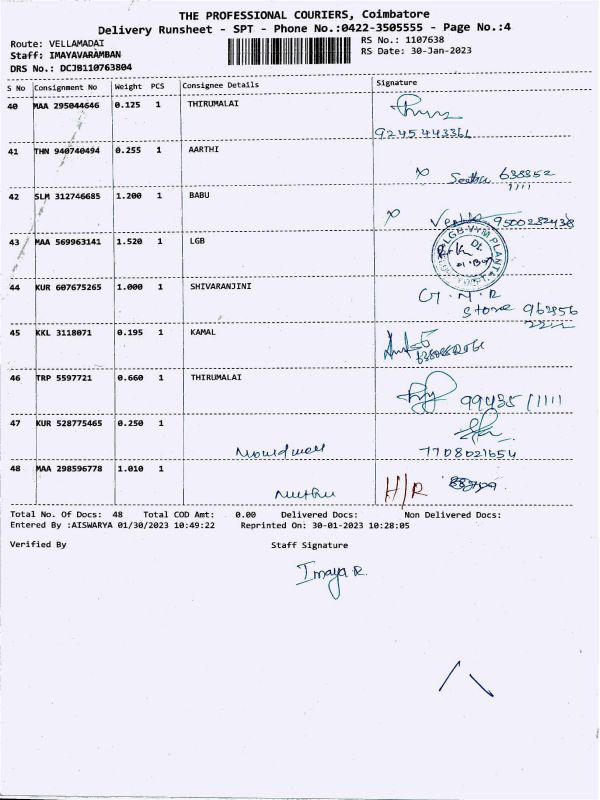 THE PROFESSIONAL COURIERS, Coimbatore
Delivery Runsheet - SPT - Phone No.:0422-3505555 - Page No.:4
Route: VELLAMADAI RS No.: 1107638
Staff: IMAYAVARAMBAN RS Date: 30-Jan-2023
DRS No.: DCJB110763804
S No Consignment No Weight PCS Consignee Details Signature
40 MAA 295044646 0.125 1 THIRUMALAI
9245443361
41 THN 940740494 0.255 1 AARTHI
638352
1111
42 SLM 312746685 1.200 1 BABU
9500232438
43 MAA 569963141 1.520 1 LGB
44 KUR 607675265 1.000 1 SHIVARANJINI G.N.R
Store 962956
2211
45 KKL 3118071 0.195 1 KAMAL
46 TRP 5597721 0.660 1 THIRUMALAI
99435/1111
47 KUR 528775465 0.250 1
7708021654
48 MAA 298596778 1.010 1 H/R
Total No. Of Docs: 48 Total COD Amt: 0.00 Delivered Docs: Non Delivered Docs:
Entered By :AISWARYA 01/30/2023 10:49:22 Reprinted On: 30-01-2023 10:28:05
Verified By Staff Signature
Imaya R.